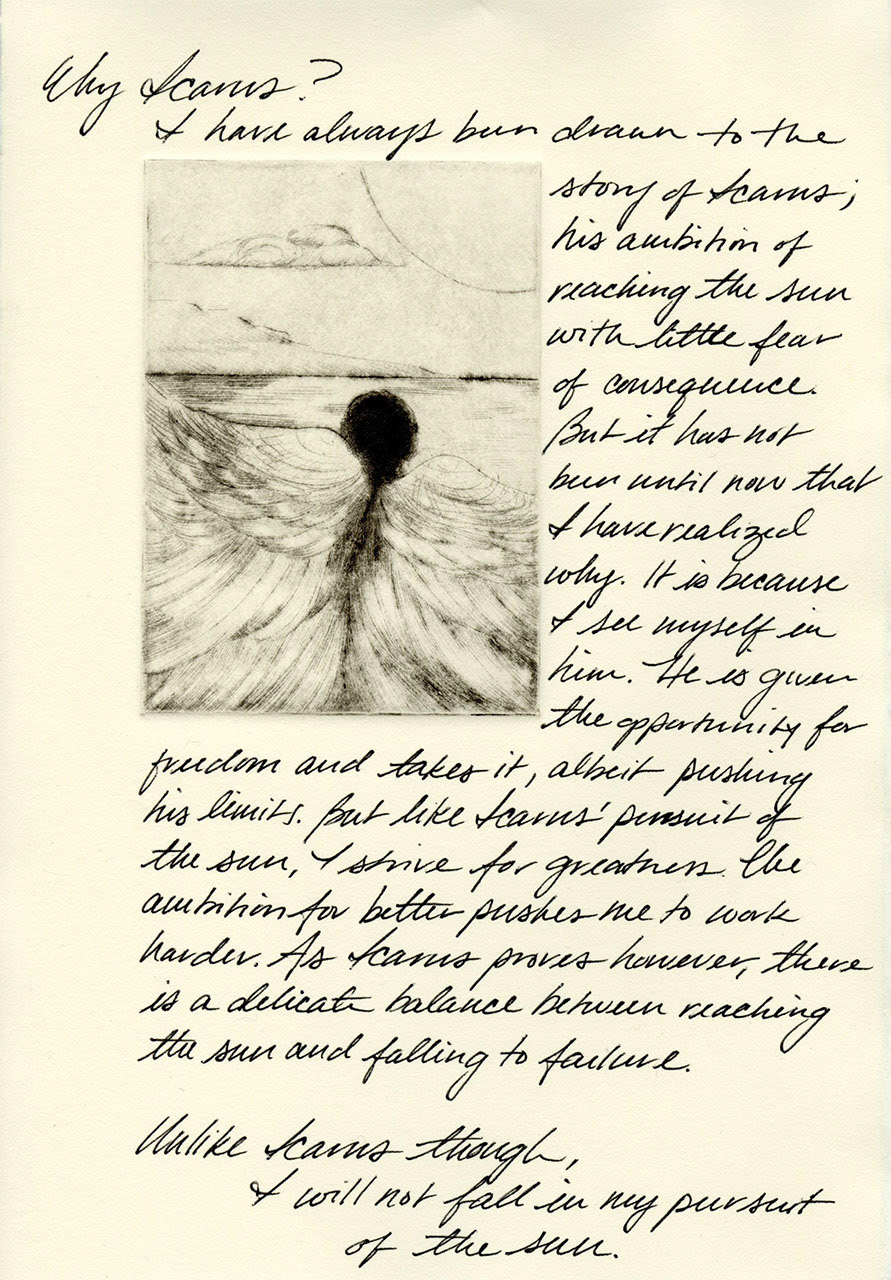 Why Icarus?
I have always been drawn to the
story of Icarus;
his ambition of
reaching the sun
with little fear
of consequence.
But it has not
been until now that
I have realized
why. It is because
I see myself in
him. He is given
the opportunity for
freedom and takes it, albeit pushing
his limits. But like Icarus' pursuit of
the sun, I strive for greatness. The
ambition for better pushes me to work
harder. As Icarus proves however, there
is a delicate balance between reaching
the sun and falling to failure.
Unlike Icarus though,
I will not fall in my pursuit
of the sun.